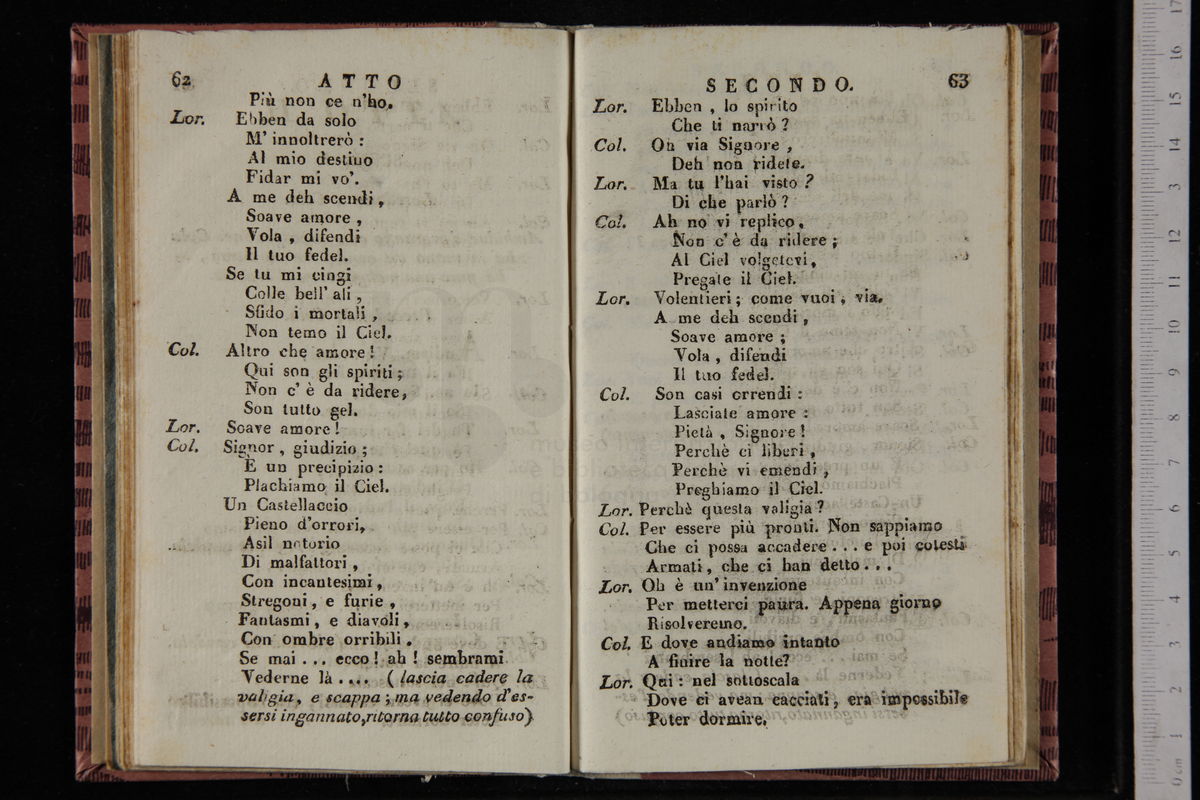 62 ATTO
Più non ce n'ho.
Lor. Ebben da solo
M' innoltrerò :
Al mio destino
Fidar mi vo'.
A me deh scendi ,
Soave amore ,
Vola , difendi
Il tuo fedel.
Se tu mi cingi
Colle bell' ali ,
Sfido i mortali ,
Non temo il Ciel.
Col. Altro che amore !
Qui son gli spiriti ;
Non c' è da ridere ,
Son tutto gel.
Lor. Soave amore !
Col. Signor , giudizio ;
È un precipizio :
Plachiamo il Ciel.
Un Castellaccio
Pieno d'orrori,
Asil notorio
Di malfattori ,
Con incantesimi ,
Stregoni , e furie ,
Fantasmi , e diavoli ,
Con ombre orribili .
Se mai ... ecco ! ah ! sembrami
Vederne là .... ( lascia cadere la
valigia, e scappa ; ma vedendo d'es-
sersi ingannato,ritorna tutto confuso)
SECONDO. 63
Lor. Ebben , lo spirito
Che ti narrò ?
Col. Oh via Signore ,
Deh non ridete.
Lor. Ma tu l'hai visto ?
Di che parlò ?
Col. Ah no vi replico ,
Non c' è da ridere ;
Al Ciel volgetevi ,
Pregate il Ciel.
Lor. Volentieri ; come vuoi , via.
A me deh scendi ,
Soave amore ;
Vola , difendi
Il tuo fedel.
Col. Son casi orrendi :
Lasciate amore :
Pietà , Signore !
Perchè ci liberi ,
Perchè vi emendi ,
Preghiamo il Ciel.
Lor. Perchè questa valigia ?
Col. Per essere più pronti. Non sappiamo
Che ci possa accadere ... e poi cotesti
Armati , che ci han detto ...
Lor. Oh è un' invenzione
Per metterci paura. Appena giorno
Risolveremo.
Col. E dove andiamo intanto
A finire la notte?
Lor. Qui : nel sottoscala
Dove ci avean cacciati , era impossibile
Poter dormire.